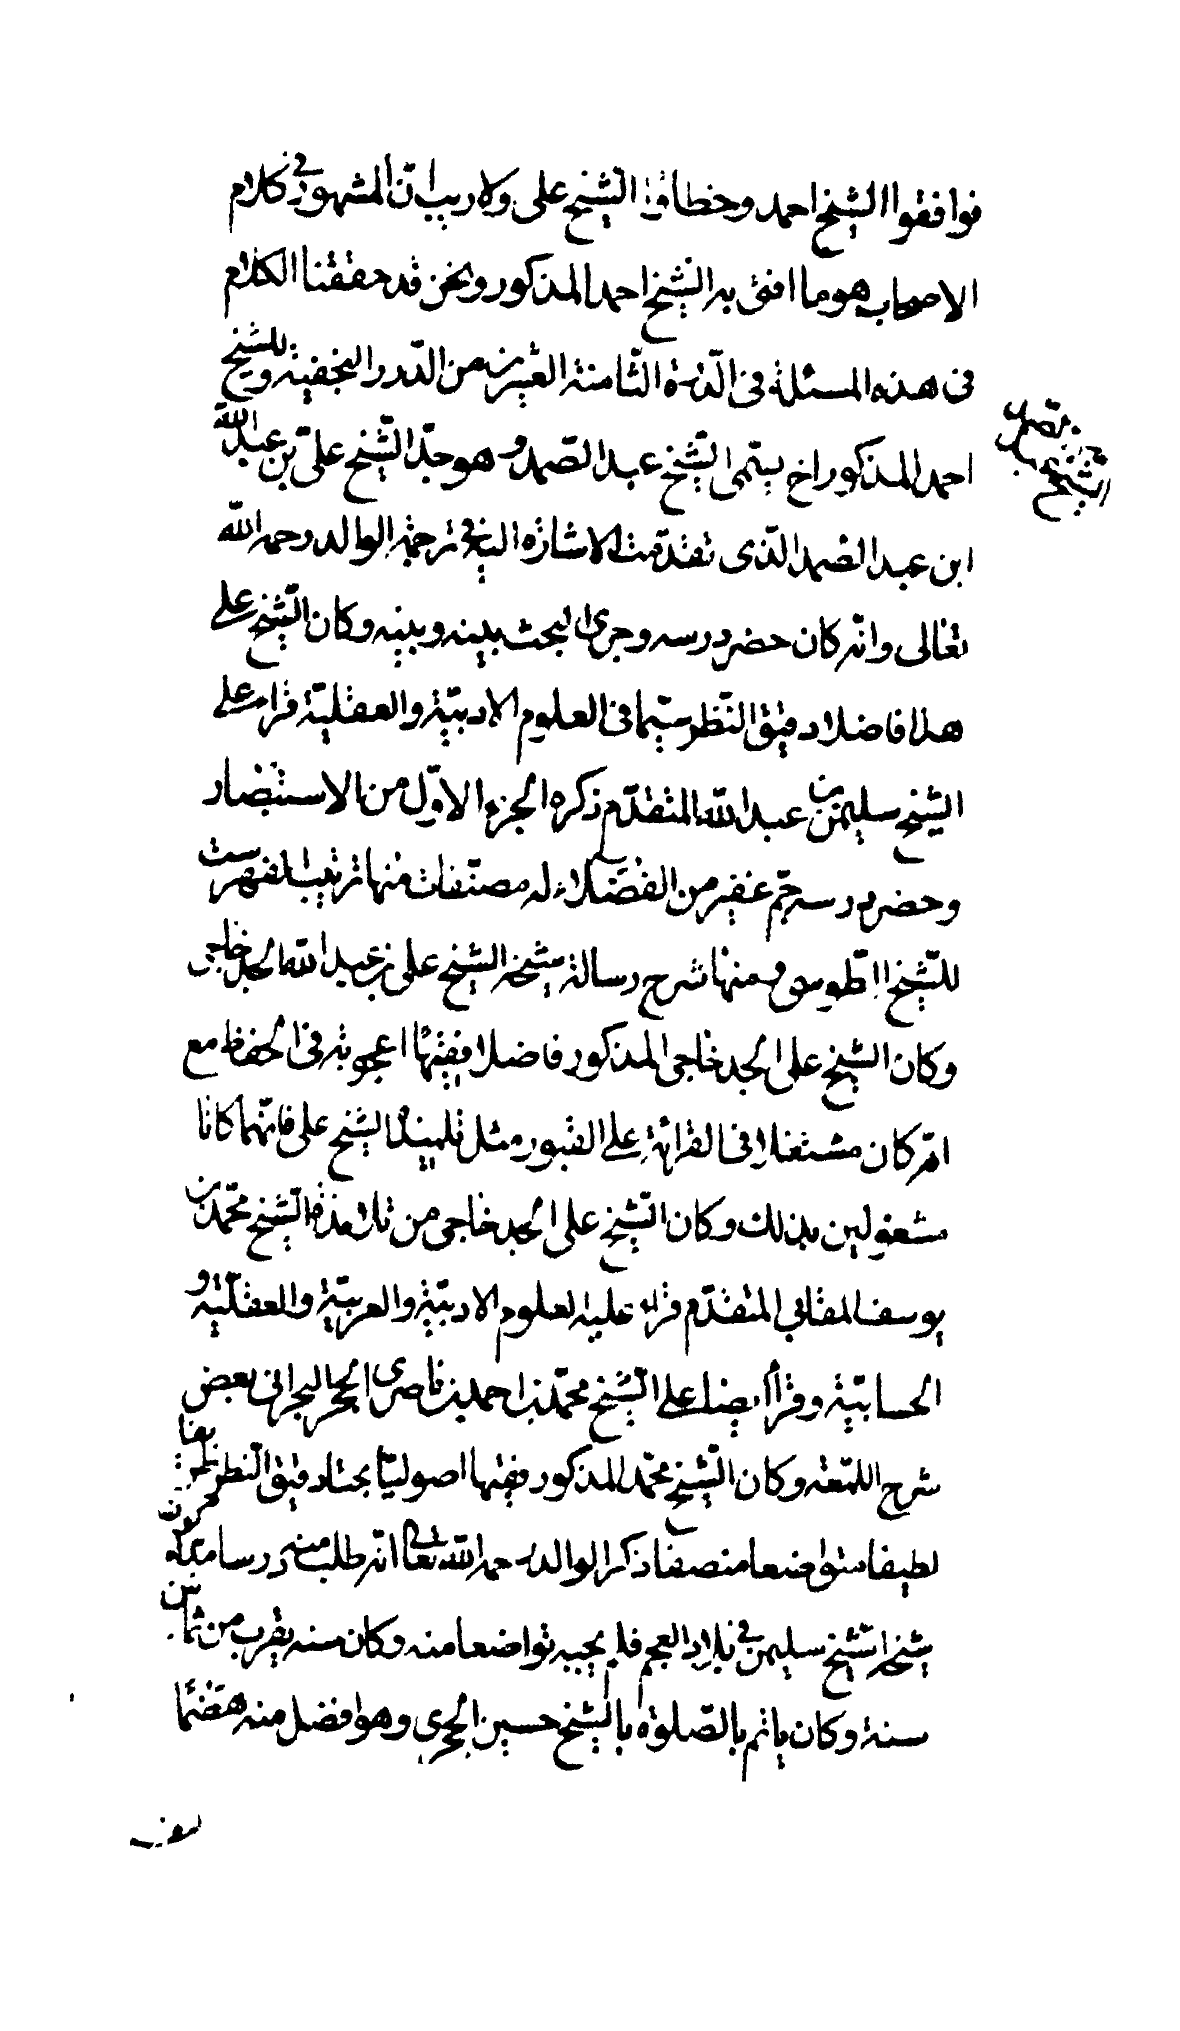 فوافقوا الشيخ احمد وخطاؤا الشيخ على ولا ريب ان المشهور في كلام
الاصحاب هو ما افتى به الشيخ احمد المذكور ونحن قد حققنا الكلام
في هذه المسئلة في الدّرة الثّامنة العشرين من الدّرر النجفية وللشيخ
احمد المذكور اخ يسمّى الشّيخ عبد الصّمد وهو جدّ الشّيخ علىّ بن عبد الله
ابن عبد الصّمد الّذى تقدّمت الاشارة اليه في ترجمة الوالد رحمه الله
تعالى وانّه كان حضر درسه وجرى البحث بينه وبينه وكان الشّيخ على
هذا فاضلا دقيق النّظر سيّما في العلوم الادبيّة والعقليّة قراء على
الشيخ سليمن بن عبد الله المتقدّم ذكره الجزء الاوّل من الاستبصار
وحضر درسه جمّ غفير من الفضلاء له مصنّفات منها ترتيب الفهرست
للشّيخ الطّوسى ومنها شرح رسالة شيخه الشيخ على بن عبد الله الجدحاجى
وكان الشّيخ على الجدحاجى المذكور فاضلا فقيها اعجوبة في الحفظ مع
انّه كان مشتغلا في القرائة على القبور مثل تلميذه الشيخ على فانّهما كانا
مشغولين بذلك وكان الشّيخ على الجدحاجى من تلامذة الشّيخ محمّد بن
يوسف المقابي المتقدّم قراء عليه العلوم الادبيّة والعربيّة والعقليّة و
الحسابيّة وقرأ ايضا على الشّيخ محمّد بن احمد بن ناصر الحجرى البحرانى بعض
شرح اللمعة وكان الشّيخ محمّد المذكور فقيها اصوليّا بحتا دقيق النظر
لطيفا متواضعا منصفا ذكر الوالد رحمه الله تعالى انّه طلب منه درسا مدّة
شيخه الشّيخ سليمن في بلاد العجم فلم يجبه تواضعا منه وكان سنه يقرب من ثمانين
سنة وكان ياتم بالصّلوة بالشّيخ حسين الحجرى وهو افضل منه هضما